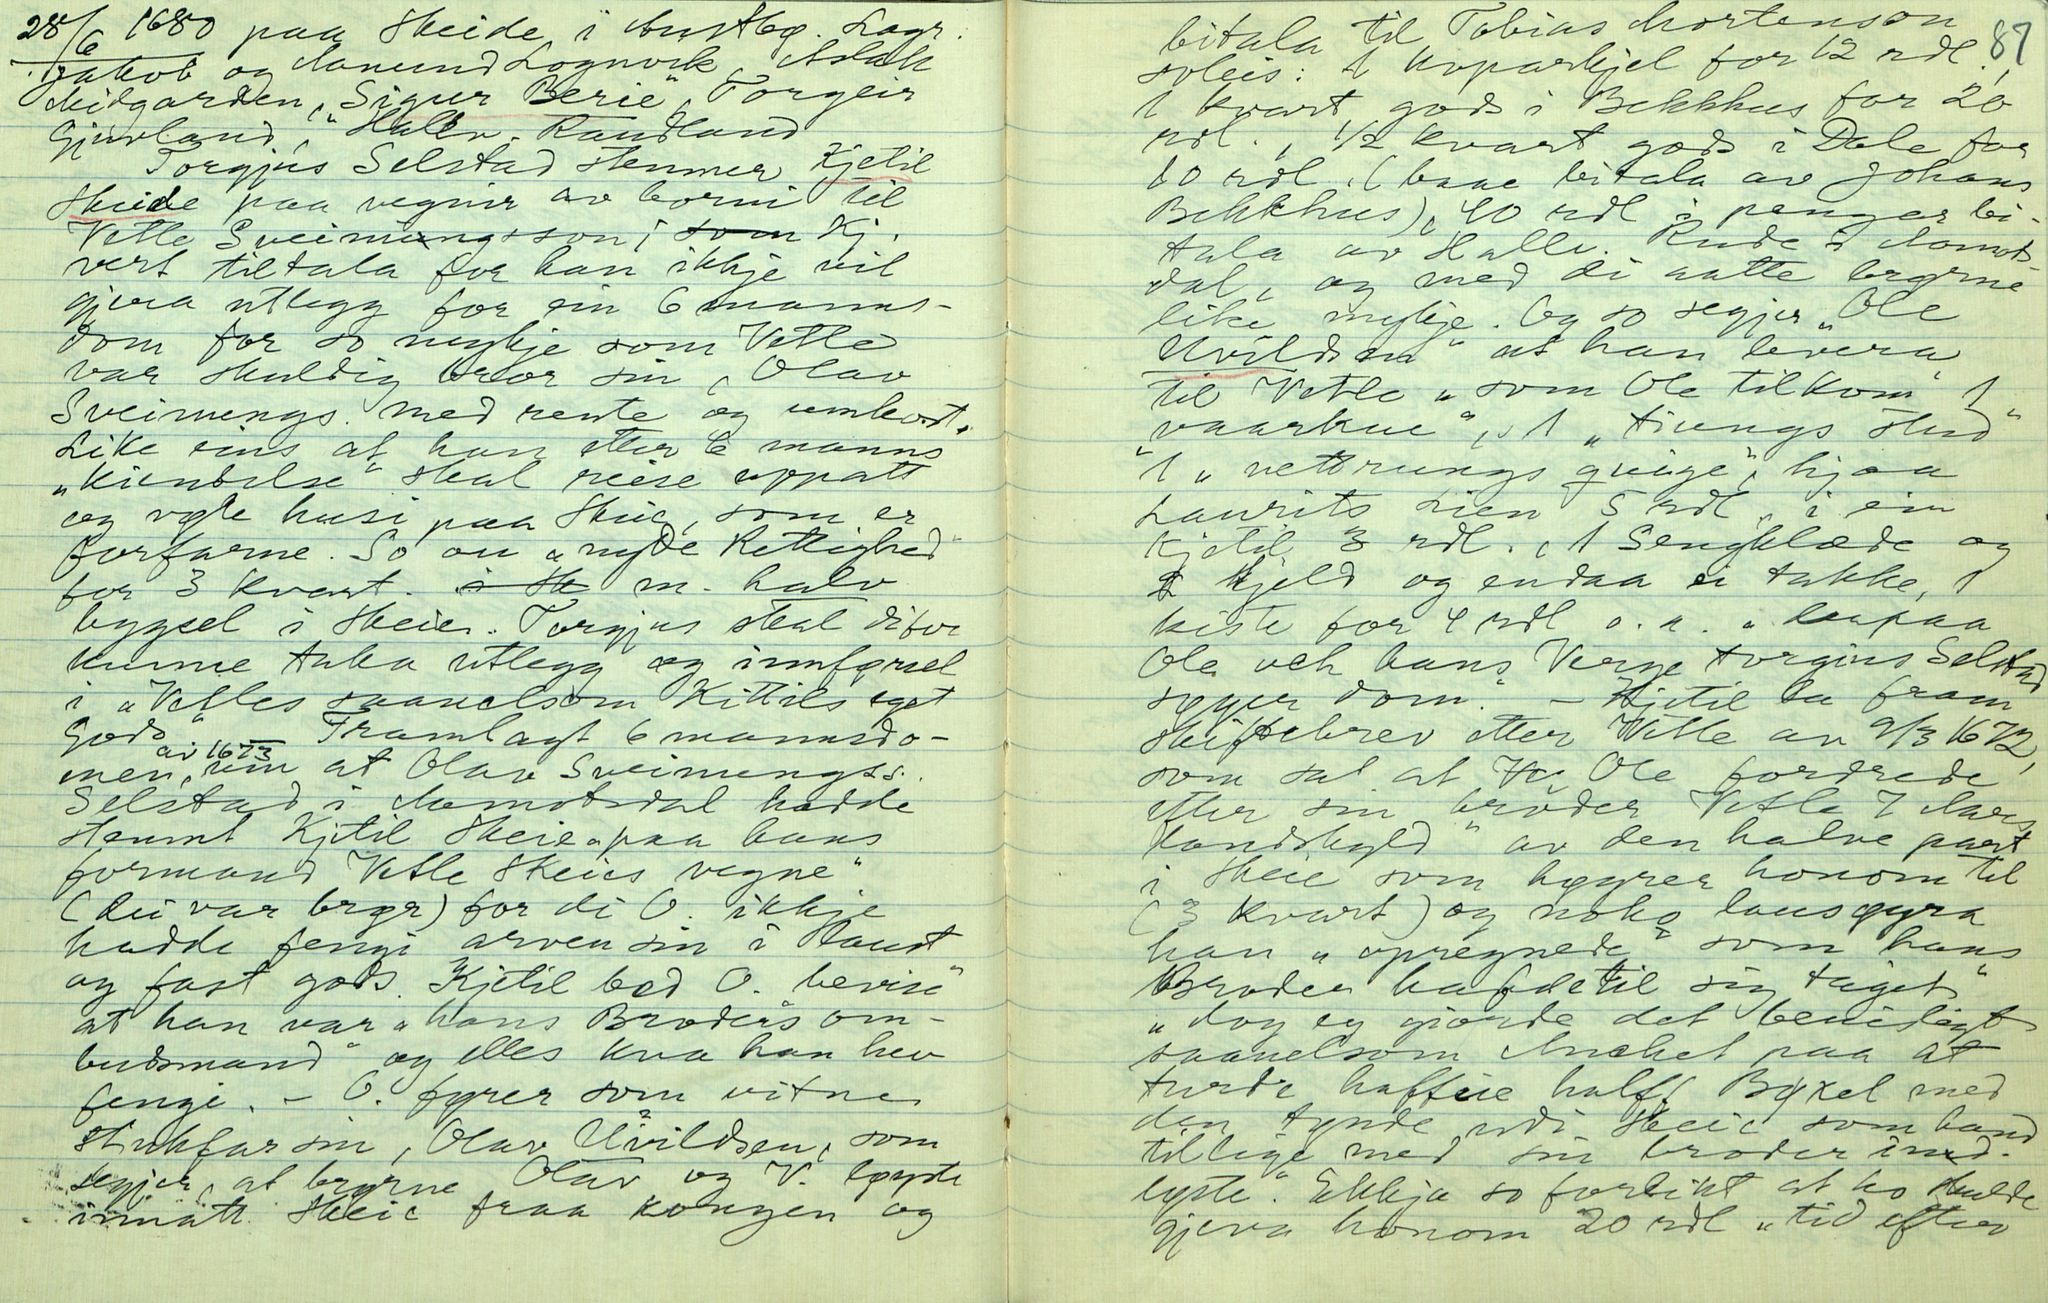 28/6 1680 paa Skeide i Austbø. Lagr.
Jakob og Aamund Lognvik, Aslak
Midgarden, "Sigur Berie", Torgeir
Gjuvland, "Hallv. Raudland
Torgjus Selstad stemner Kjetil
Skeide paa vegnir av borni til
Vetle Sveinungsson, som Kj.
vert tiltala for han ikkje vil
gjera utlegg for ein 6 manns-
dom for so mykje som Vetle
var skuldig bror sin, Olav
Sveinungs. med rente og umkost.
Like eins at han etter 6 manns
"kiendelse" skal reise uppatt
og vøle husi paa Skeie, som er
forfarne. So ou "nyde Rettighed"
for 3 kvart. i Sk m. halv
bygsel i Skeie. Torgjus skal difor
kunne taka utlegg og innførsel
i "Vetles saavelsom Kittils eget
Gods" Framlagt 6 mannsdo-
men av 1673, um at Olav Sveinungss.
Selstad i Aamotsdal hadde
stemnt Kjetil Skeie "paa hans
formand Vetle Skeies vegne"
(dei var brør) for di O. ikkje
hadde fengi arven sin i Staut
og fast gods. Kjetil bad O. bevise"
at han var "hans Broders om-
budsmand" og elles kva han hev
fengi. – O. fører som vitne
stukfar sin, Olav Uvildsen, som
segjer, at brørne Olav og V. bøyde
innatt Skeie fraa kongen og
87
bitala til Tobias Mortenson
soleis: 1 koparkjel for 12 rdl.,
1 kvart gods i Bekkhus for 20
rdl., 1/2 kvart gods i Dale for
10 rdl. (baae bitala av Johans
Bekkhus), 40 rdl i pengar bi-
tala av Hallv. Rude i Aamots-
dal, og med di aatte brørne
like mykje. Og so segjer "Ole
Uvildsen" at han levera
til Vetle "som Ole tilkom" 1
"vaarkue", 1 "tiungs stud"
1 "vettrungs quige", hjaa
Laurits Lien 5 rdl, i ein
Kjetil 3 rdl., 1 Sengklæde og
1 Kjeld og endaa ei takke, 1
kiste for 4 rdl o. a. "
Ole och hans Verge torgius Selstad
dom." – Kjetil la fram
skiftebrev etter Vetle av 9/3 1672,
som sa at Ve Ole fordrede
etter sin bröder Vetle 7 Aars
landskyld" av den halve part
i Skeie som høyrer honom til
(3 kvart) og noko lausøyra
han "opregnede" som hans
Broder hafde til sig taget"
"dog ey giorde det bevisligt
saavelsom Anchet paa at
turde haffue halff Bøxel med
den tynde udi Skeie som hand
tillige med sin broder ind-
løste". Ekkja so forlikt at ho skulde
gjeva honom 20 rdl "tid efter